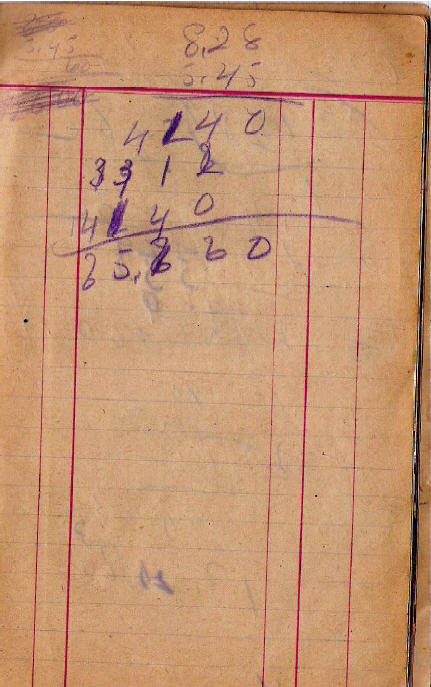 5,45
60
8,28
5.45
4140
3312
4140
65,660